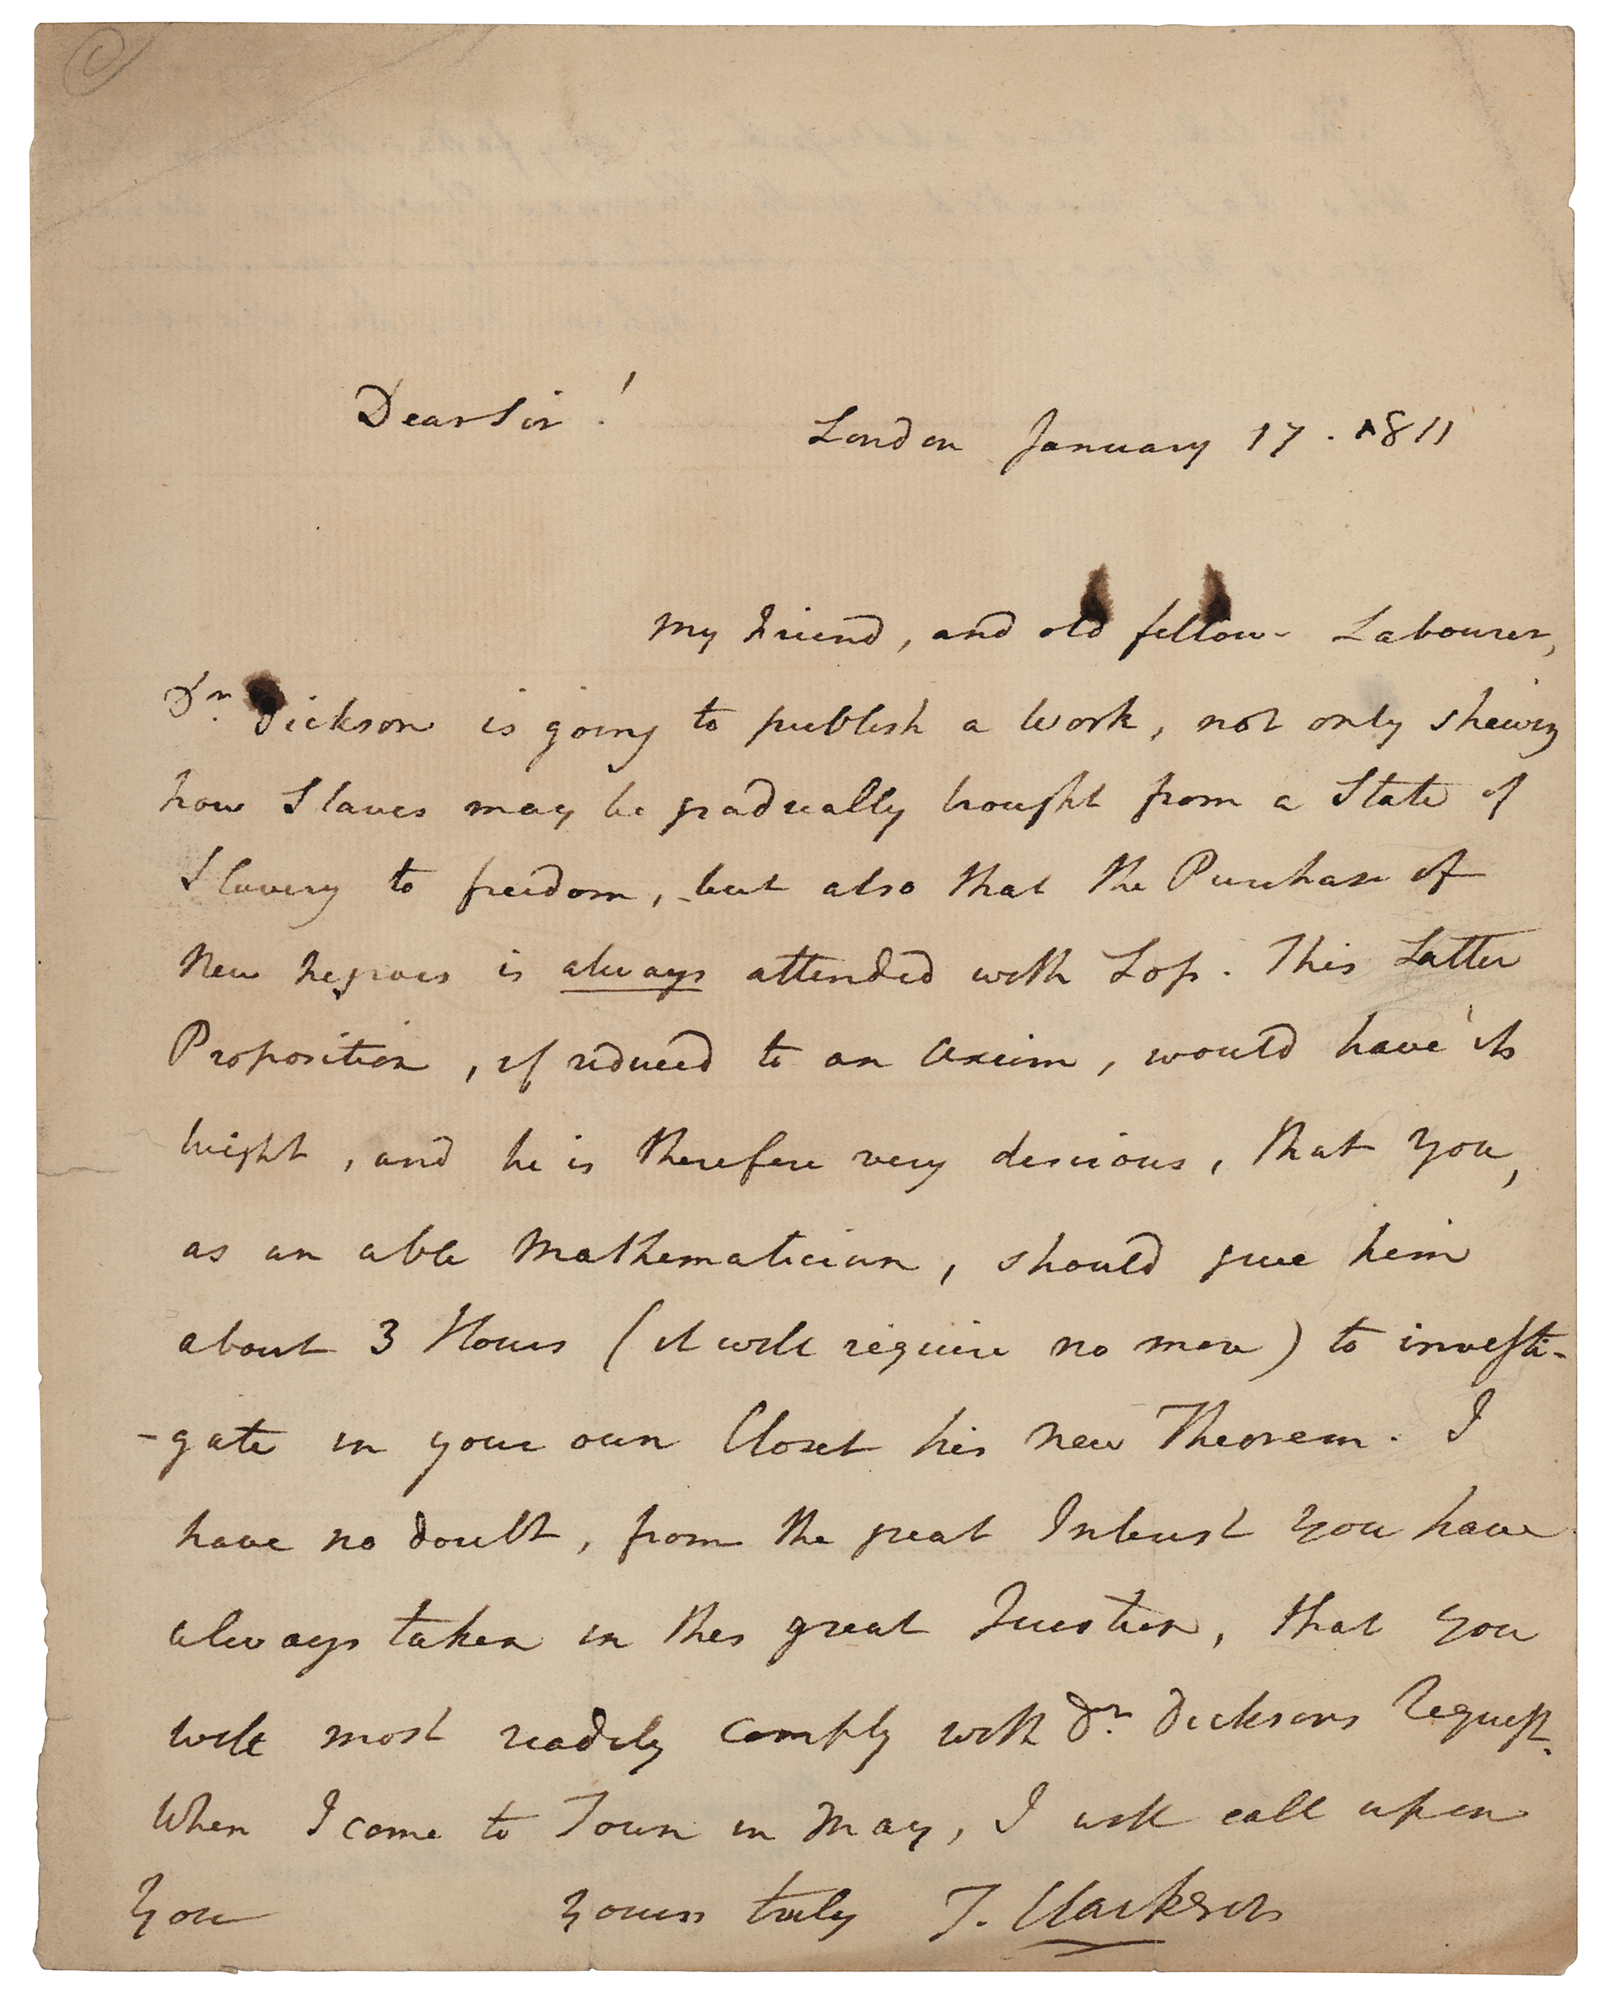 Dear Sir!
London January 17. 1811
My Friend, and old fellow-Labourer,
Dr. Dickson is going to publish a Work, not only shewing
how Slaves may be gradually brought from a State of
Slavery to freedom, but also that the Purchase of
New negroes is always attended with Loss. This Latter
Proposition, if reduced to an Axiom, would have its
weight, and he is therefore very desirous, that you,
as an able Mathematician, should give him
about 3 Hours (it will require no more) to investi-
-gate in your own Closet his new Theorem. I
have no doubt, from the great Interest you have
always taken in this great Question, that you
will most readily comply with Dr. Dicksons Request.
When I come to Town in May, I will call upon
you
yours truly T. Clarkson